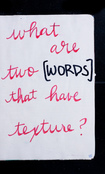 what
are
two [WORDS]
that have
texture?